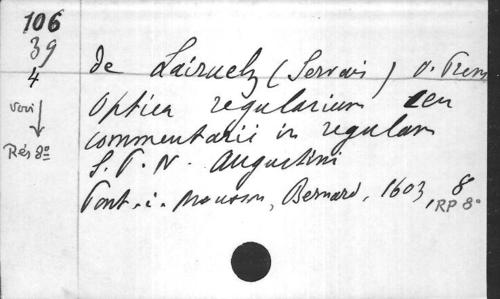 106
39
4
voir
Rés 8º
de Lairuelz (Servais) O. Prem
Optica regularium seu
commentarii in regulam
S. P. N. Augustini
Pont. à. Mousson, Bernard, 1603, 8
RP 8º